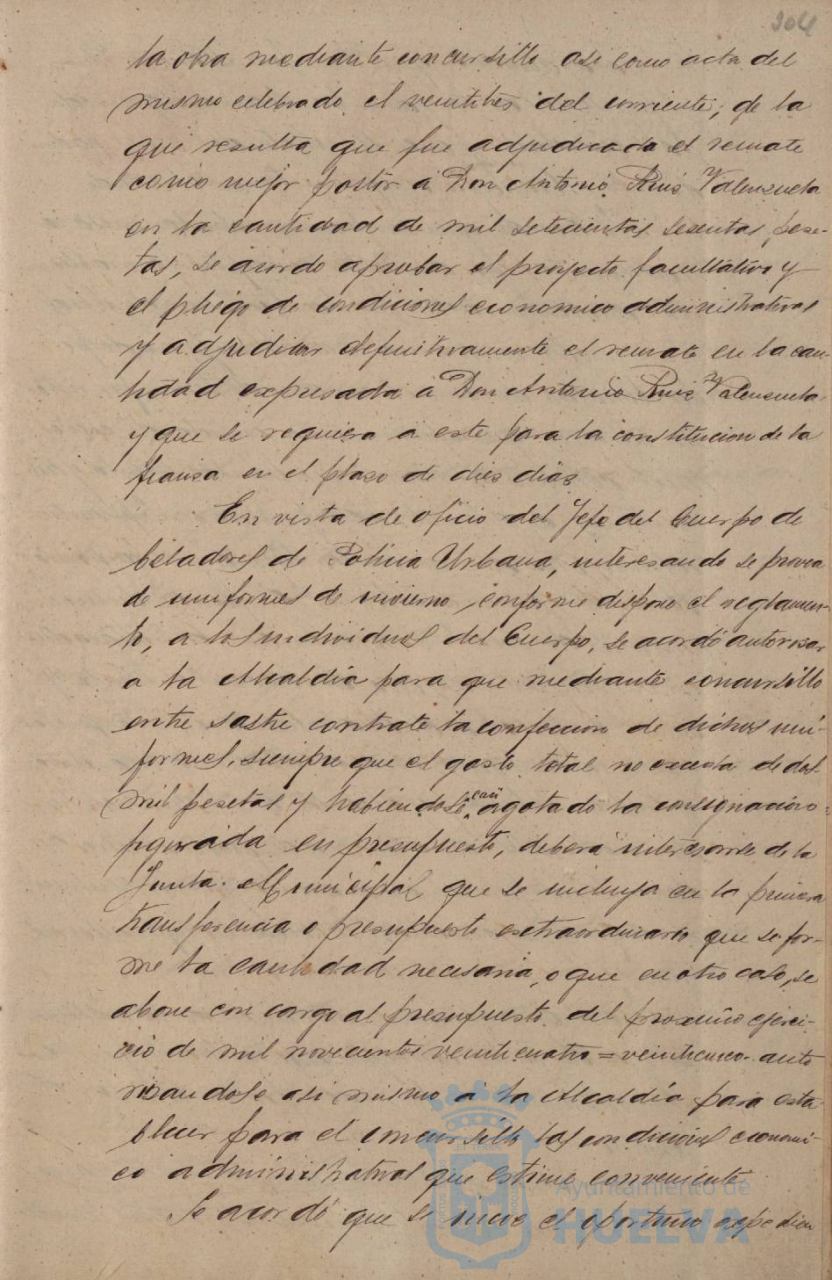 304
la obra mediante concursillo asi como acta del
mismo celebrado el veintitres del corriente, de la
que resulta que fue adjudicada el remate
como mejor postor a Don Antonio Ruis Valenzuela
en la cantidad de mil setecientas sesentas pese-
tas, se acordo aprobar el proyecto facultativo y
el pliego de condiciones economico administrativas
y adjudicar definitivamente el remate en la can-
tidad expresada a Don Antonio Ruiz Valenzuela
y que se requiera a este para la constitucion de la
fianza en el plaso de dies dias
En vista de oficio del Jefe del Cuerpo de
beladores de Policia Urbana, interesando se provea
de uniformes de invierno, conforme dispone el reglamen-
to, a los individuos del Cuerpo, se acordó autorisar
a la Alcaldia para que mediante concursillo
entre sastre contrate la confeccion de dichos uni-
formes, siempre que el gasto total no exceda de dos
mil pesetas y habiendose casi agotado la consignacion
figurada en presupuesto, deberá interesarse de la
Junta Municipal que se incluya en la primera
transferencia o presupuesto extraordinario que se for-
me la cantidad necesaria, o que en otro caso, se
abone con cargo al presupuesto del proximo ejerci-
cio de mil novecientos veinticuatro = veinticinco. auto
risandole asi mismo a la Alcaldía para esta-
blecer para el concursillo las condiciones economi-
co administrativas que estime conveniente
Se acordó que se inicie el oportuno expedien
Ayuntamiento de
HUELVA